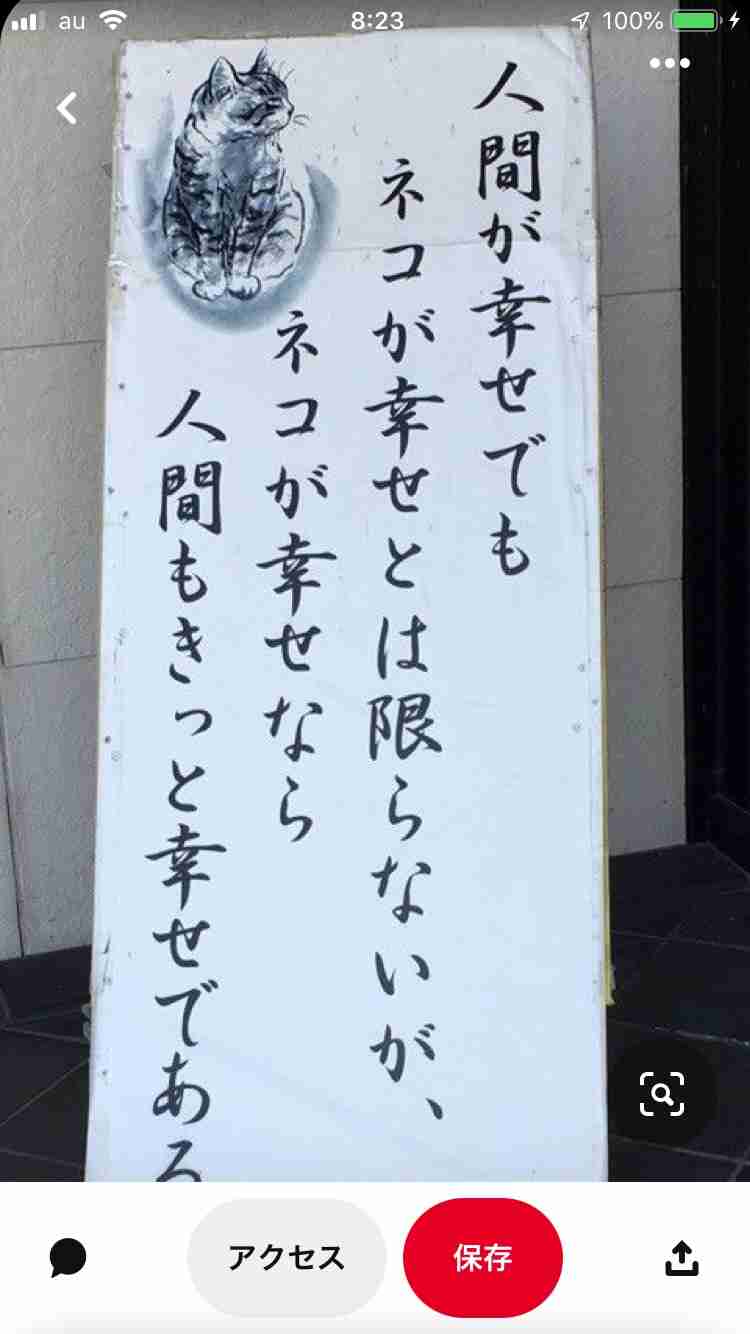 au
8:23
100%
人間が幸せでも
ネコが幸せとは限らないが、
ネコが幸せなら
人間もきっと幸せである
アクセス
保存